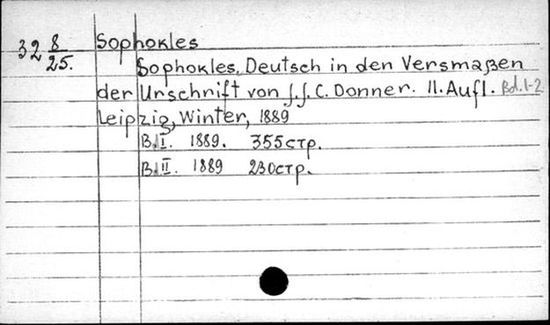 32 8/25.
Sophokles
Sophokles, Deutsch in den Versmaßen
der Urschrift von J. J. C. Donner. 11. Aufl. Bd. 1-2
Leipzig, Winter, 1889
Bd I. 1889. 355стр.
Bd II. 1889 230стр.